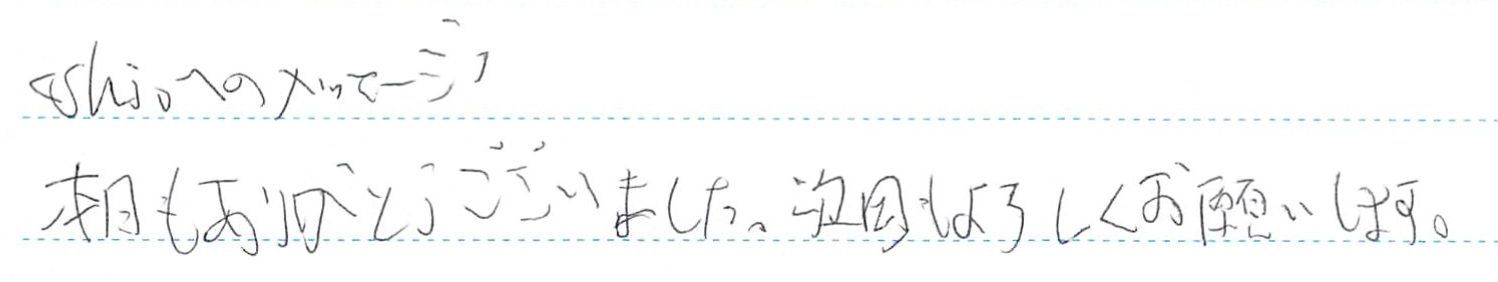 eshioへのメッセージ
本日もありがとうございました。次回もよろしくお願いします。